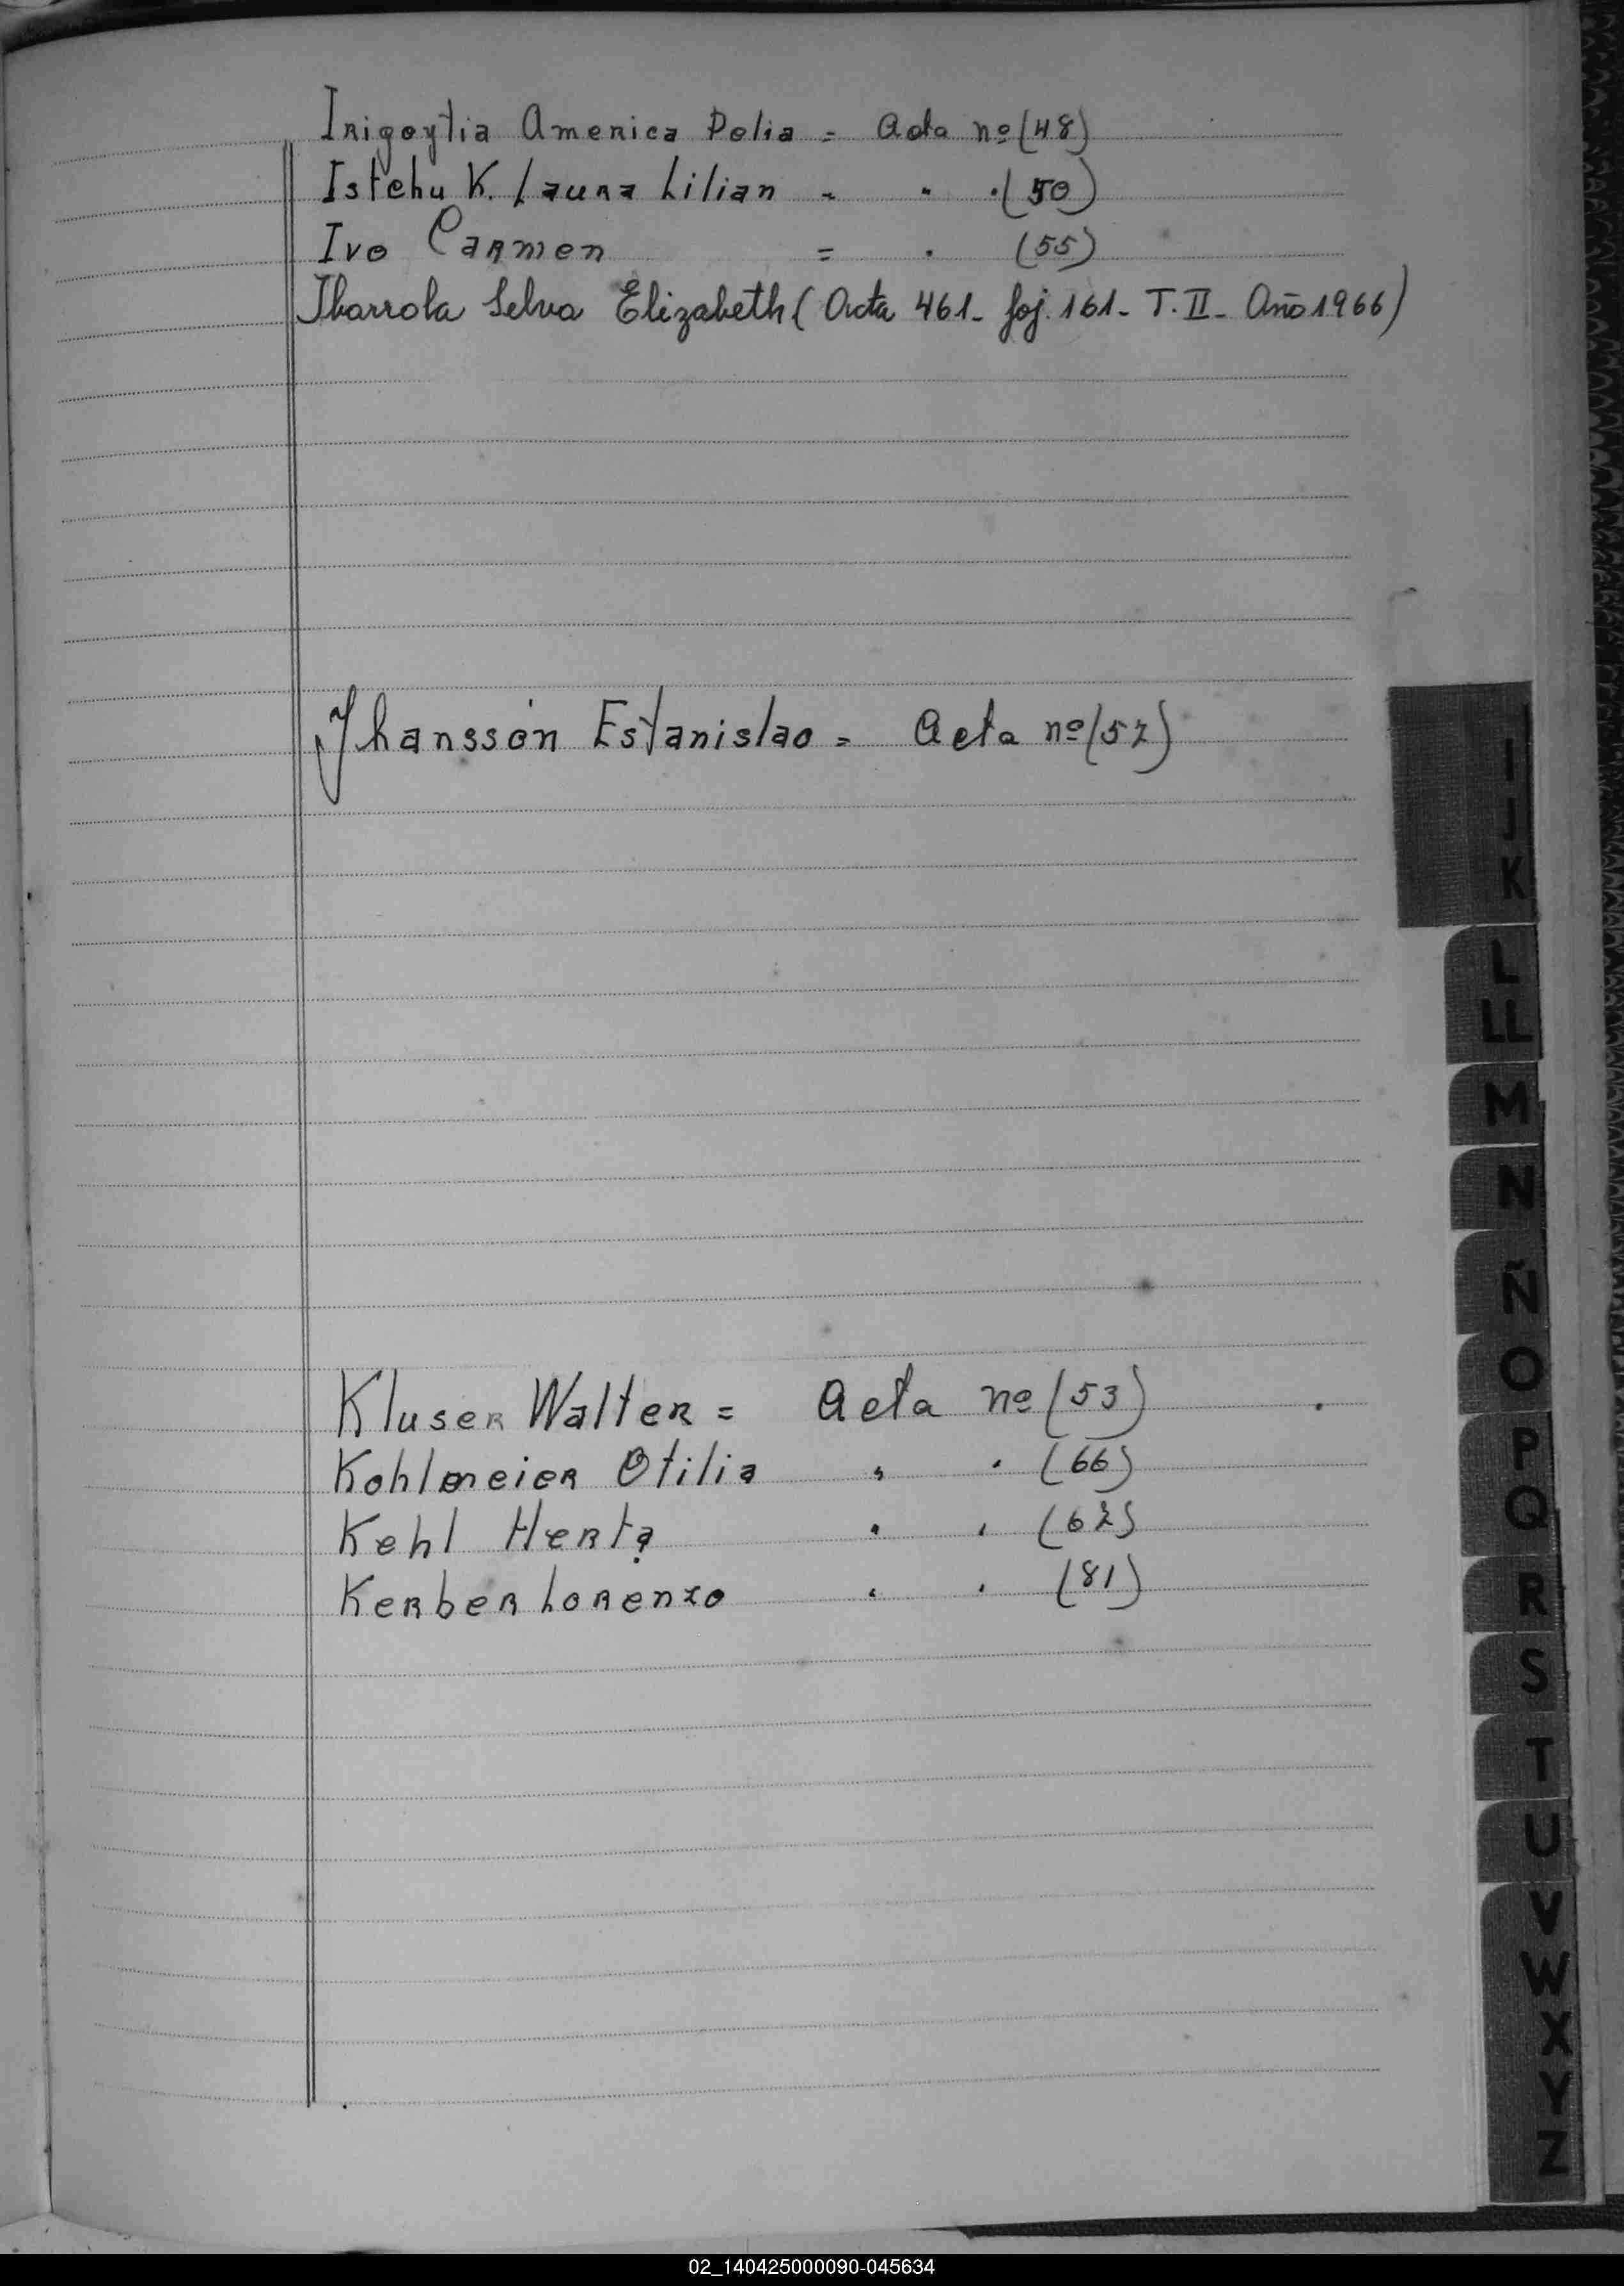 Irigoytia America Delia = Acta nº (48)
Istehu K. Laura Lilian = " " (50)
Ivo Carmen = " (55)
Ibarrola Selva Elizabeth ( Acta 461- foj. 161- T. II- Año 1966)
Jhanssón Estanislao = Acta nº (52)
I
J
K
L
LL
M
N
Ñ
O
P
Q
R
S
T
U
V
W
X
Y
Z
Kluser Walter = Acta nº (53)
Kohlmeier Otilia " " (66)
Kehl Herta " " (62)
Kerber Lorenzo " " (81)
02_140425000090-045634